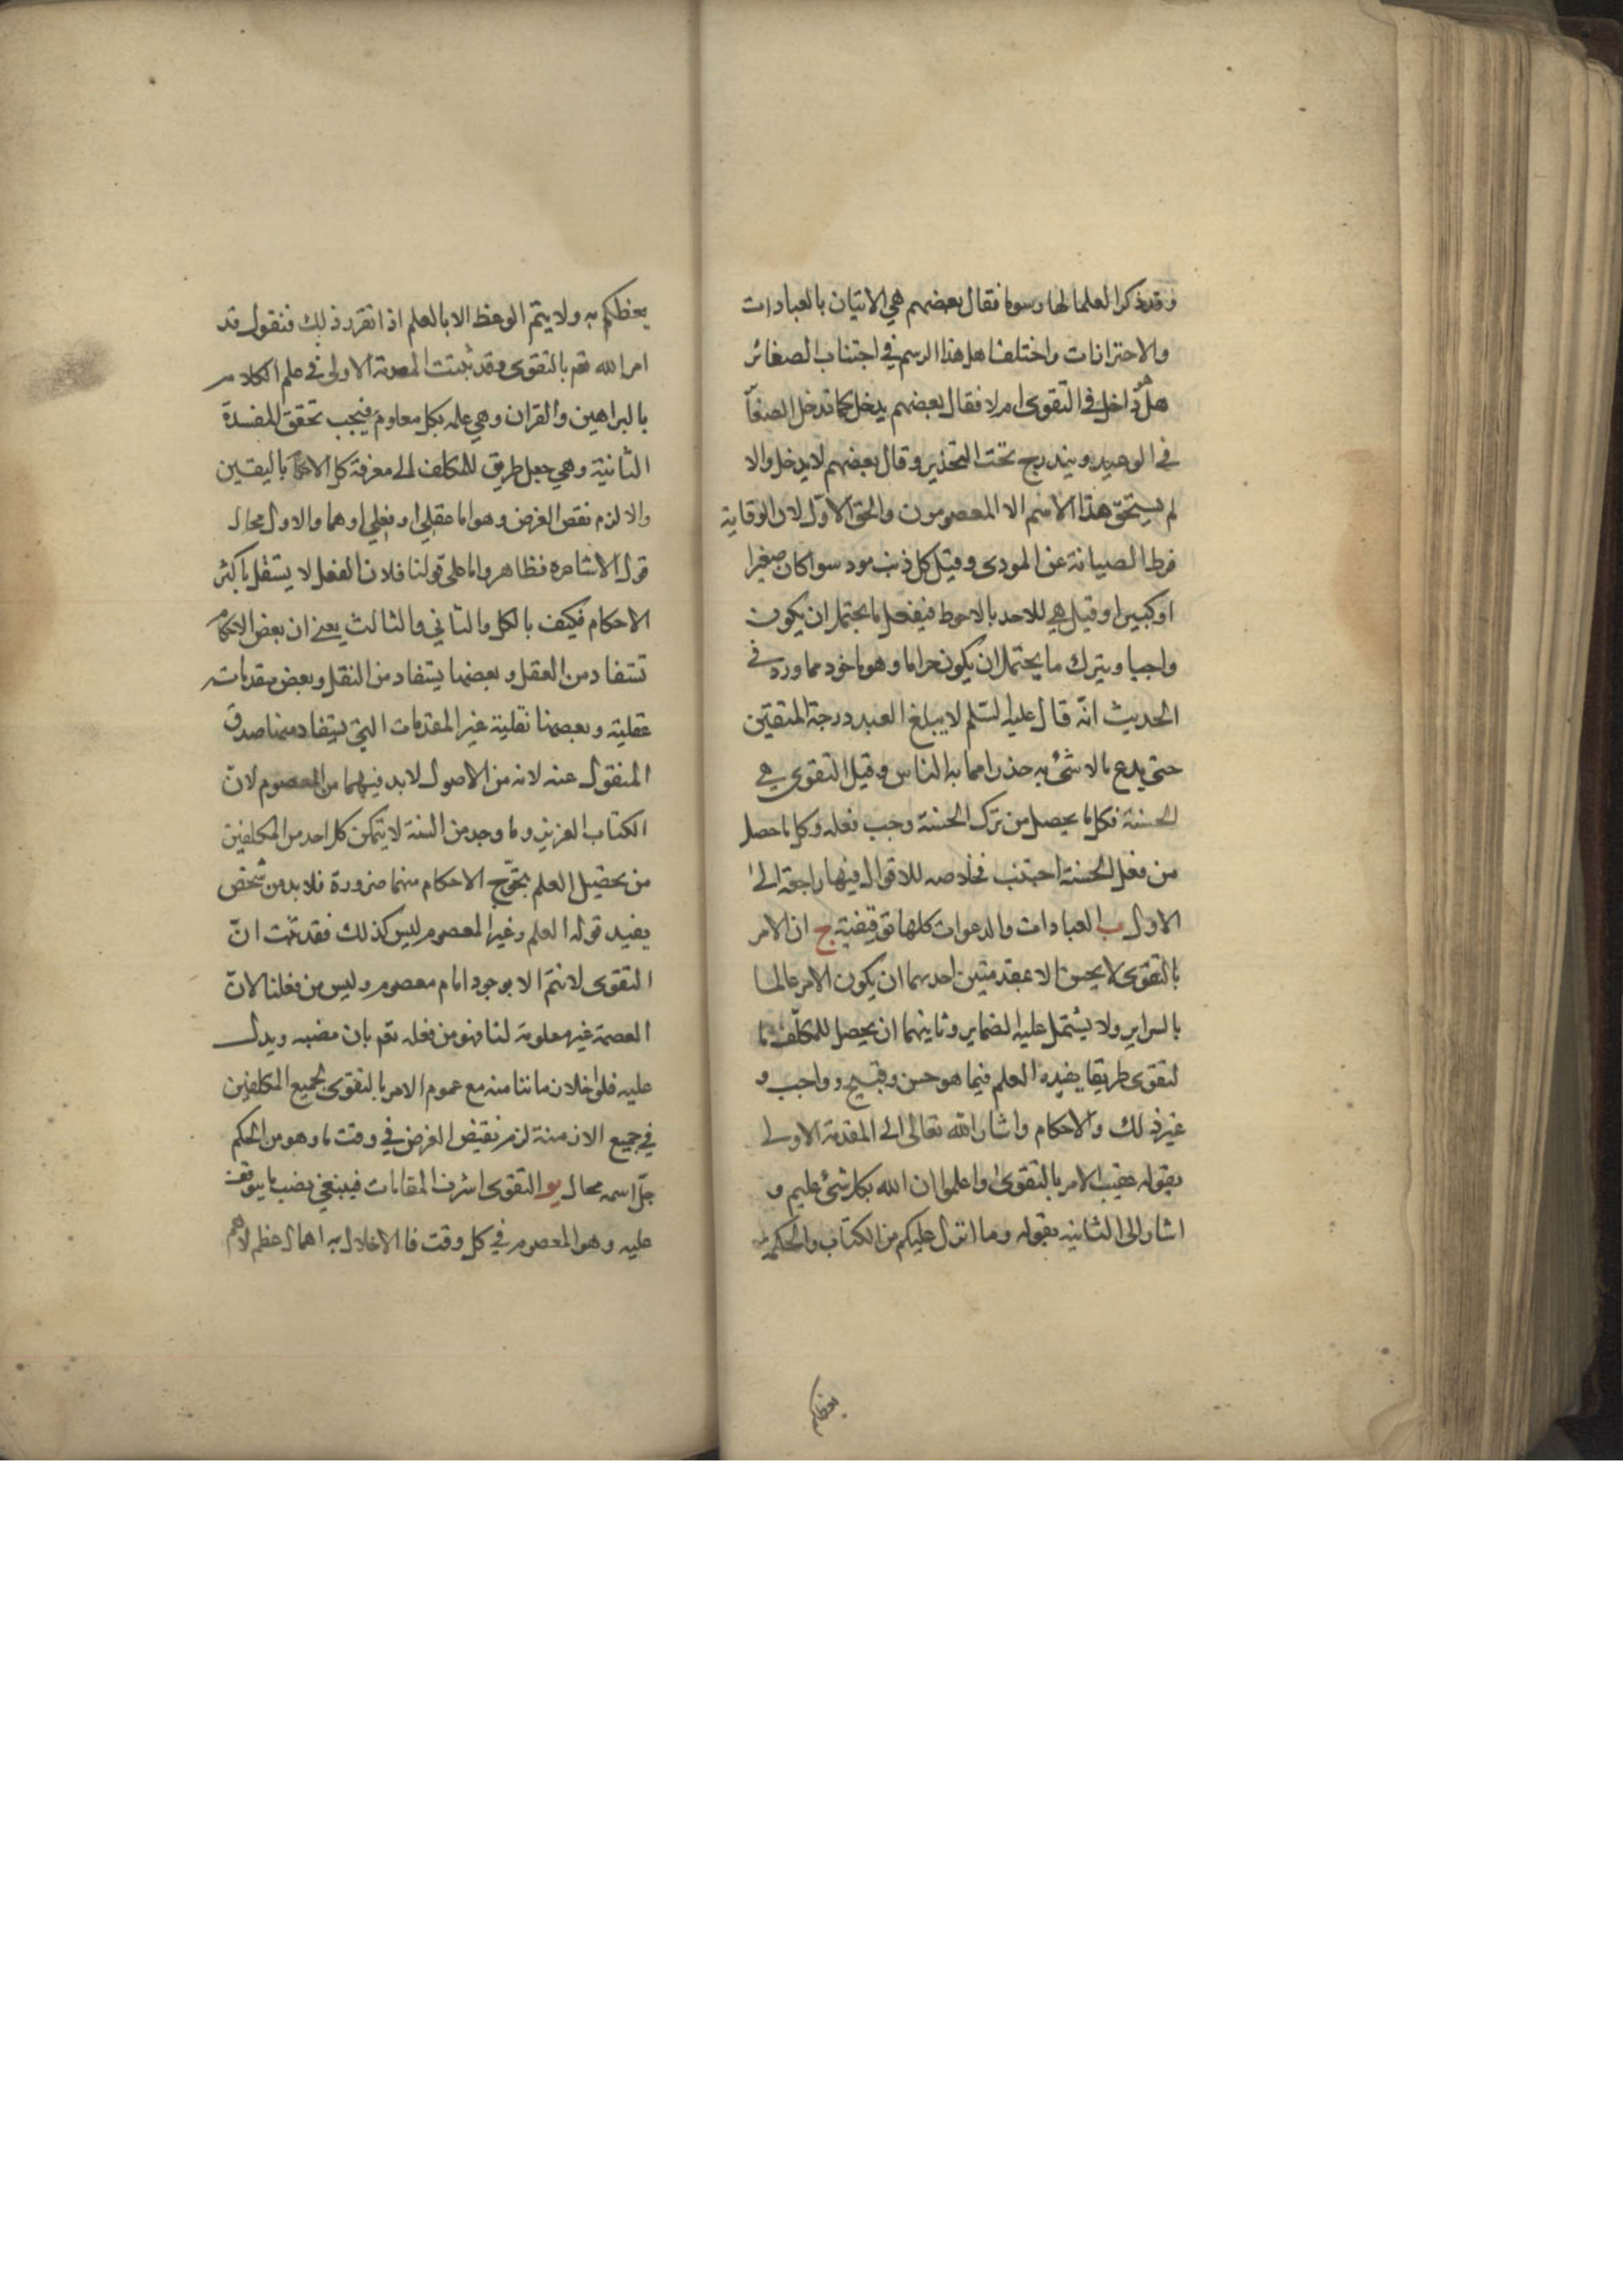 وقد ذكر العلما لها رسوما فقال بعضهم هي الاتيان بالعبادات
والاحترازات واختلفنا هل هذا الرسم في اجتناب الصغائر
هل داخل في التقوى ام لا فقال بعضهم يدخل كما تدخل الصغآ
في الوعيد ويندرج تحت التحذير وقال بعضهم لا يدخل والا
لم يستحق هذا الاسم الا المعصومون والحق الاوّل لان الوقاية
فرط الصيانة عن المودى وقيل كل ذنب مود سوا كان صغيرا
او كبيرا وقيل هي للاحد بالاحوط فيفعل ما يحتمل ان يكون
واجبا ويترك ما يحتمل ان يكون حراما وهو ماخود مما ورد في
الحديث انّه قال عليه السّلم لا يبلغ العبد درجة المتقين
حتى يدع مالا شئ به حذرا مما به الناس وقيل التقوى هي
الحسنة فكل ما يحصل من ترك الحسنة وجب فعله وكل ما حصل
من فعل الحسنة اجتنب فخلاصه للاقوال فيها راجعة الى
الاول ب العبادات والدعوات كلها توقيفية ج ان الامر
بالتقوى لا يحسن الا بمقدمتين احدهما ان يكون الامر عالما
بالسراير ولا يشتمل عليه الضماير وثاينهما ان يحصل للمكلّف ما
لتقوى طريقا يفيده العلم فيما هو حسن وقبيح وواجب و
غير ذلك والاحكام واشار الله تعالى الى المقدمة الاولى
بقوله عقيب الامر بالتقوى واعلموا ان الله بكل شئ عليم و
اشار الى الثانيه بقوله وما انزل عليكم من الكتاب والحكمة
يعظكم
يعظكم به ولا يتم الوعظ الا بالعلم اذا تقرر ذلك فنقول قد
امر الله تعم بالتقوى وقد ثبتت المقدمة الاولى في علم الكلام
بالبراهين والقران وهي علمه بكل معلوم فيجب تحقق المفسدة
الثانية وهي جعل طريق للمكلف الى معرفة كل الاحكآ باليقين
والا لزم نقض الغرض وهو اما عقلي او نقلي او هما والاول محال
قول الاشاعره فظاهر واما على قولنا فلان العقل لا يستقل باكثر
الاحكام فكيف بالكل والثاني والثالث يعني ان بعض الاحكام
تستفاد من العقل وبعضها يستفاد من النقل وبعض مقدمات
عقلية وبعضها نقلية غير المقدمات التي يستفاد منها صدق
المنقول عنه لانه من الاصول لا بد فيهما من المعصوم لان
الكتاب العزيز وما وجد من السنة لا يتمكن كل احد من المكلفين
من تحصيل العلم بجميع الاحكام منهما ضرورة فلا بد من شخص
يفيد قوله العلم وغير المعصوم ليس كذلك فقد ثبت انّ
التقوى لا تتم الا بوجود امام معصوم وليس من فعلنا لانّ
العصمة غير معلومة لنا فهو من فعله تعم بان نصبه ويدل
عليه فلو اخلا زماننا منه مع عموم الامر بالتقوى لجميع المكلفين
في جميع الازمنة لزم نقيض الغرض في وقت ما وهو من الحكم
جلّ اسمه محال يو التقوى اشرف المقامات فينبغي نصب ما يتوقف
عليه وهو المعصوم في كل وقت فالاخلال به اهمال عظم لاهم